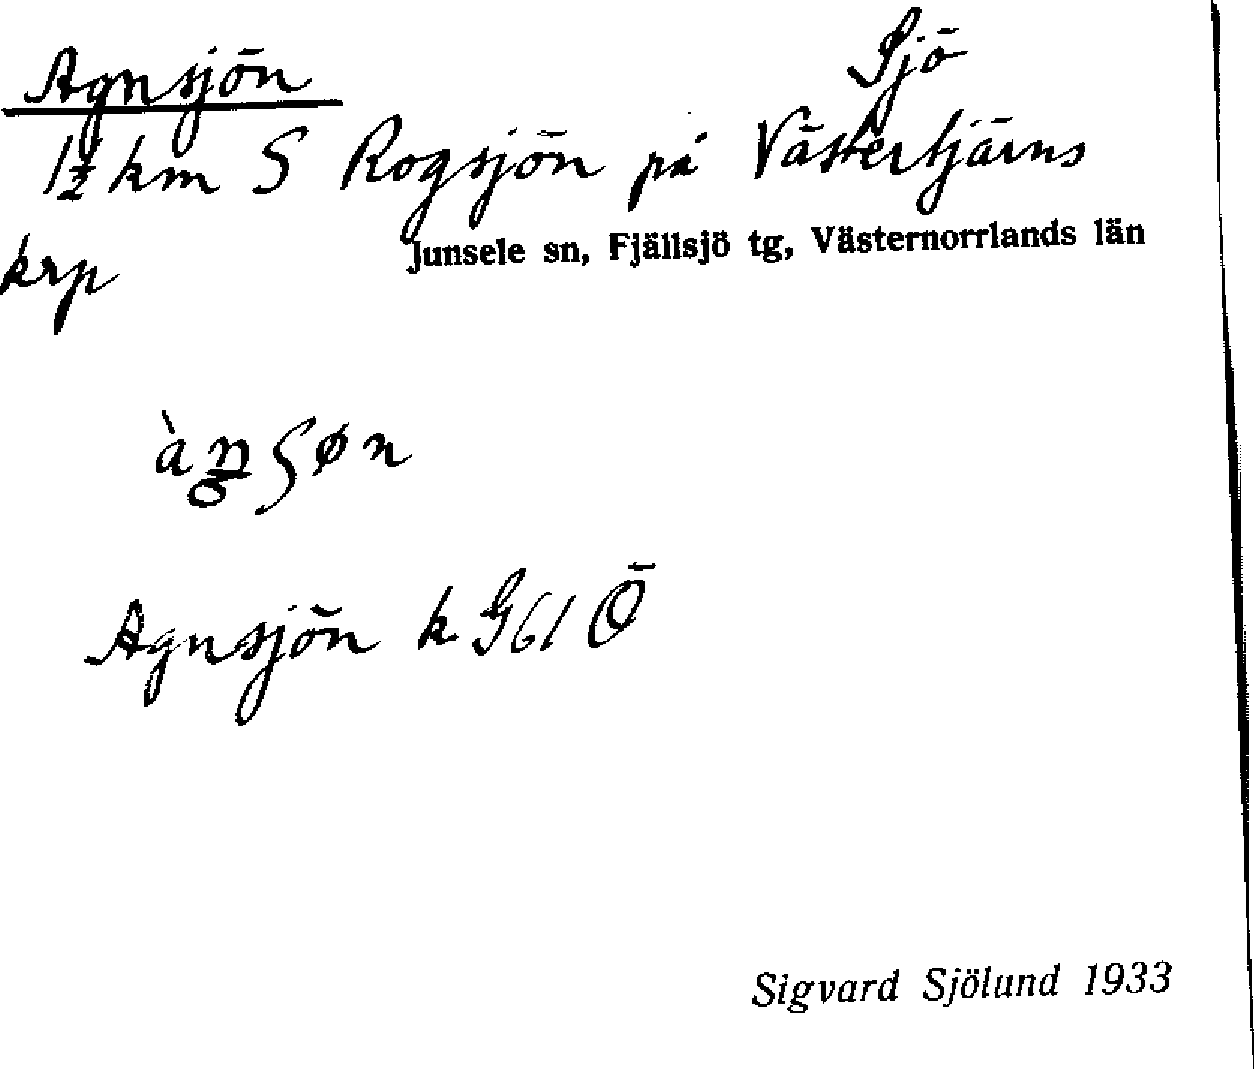 Agnsjön Sjö
1½ km S Rogsjön på Västertjärns
krp Junsele sn, Fjällsjö tg, Västernorrlands län
Agnsjön k G61 Ö
Sigvard Sjölund 1933